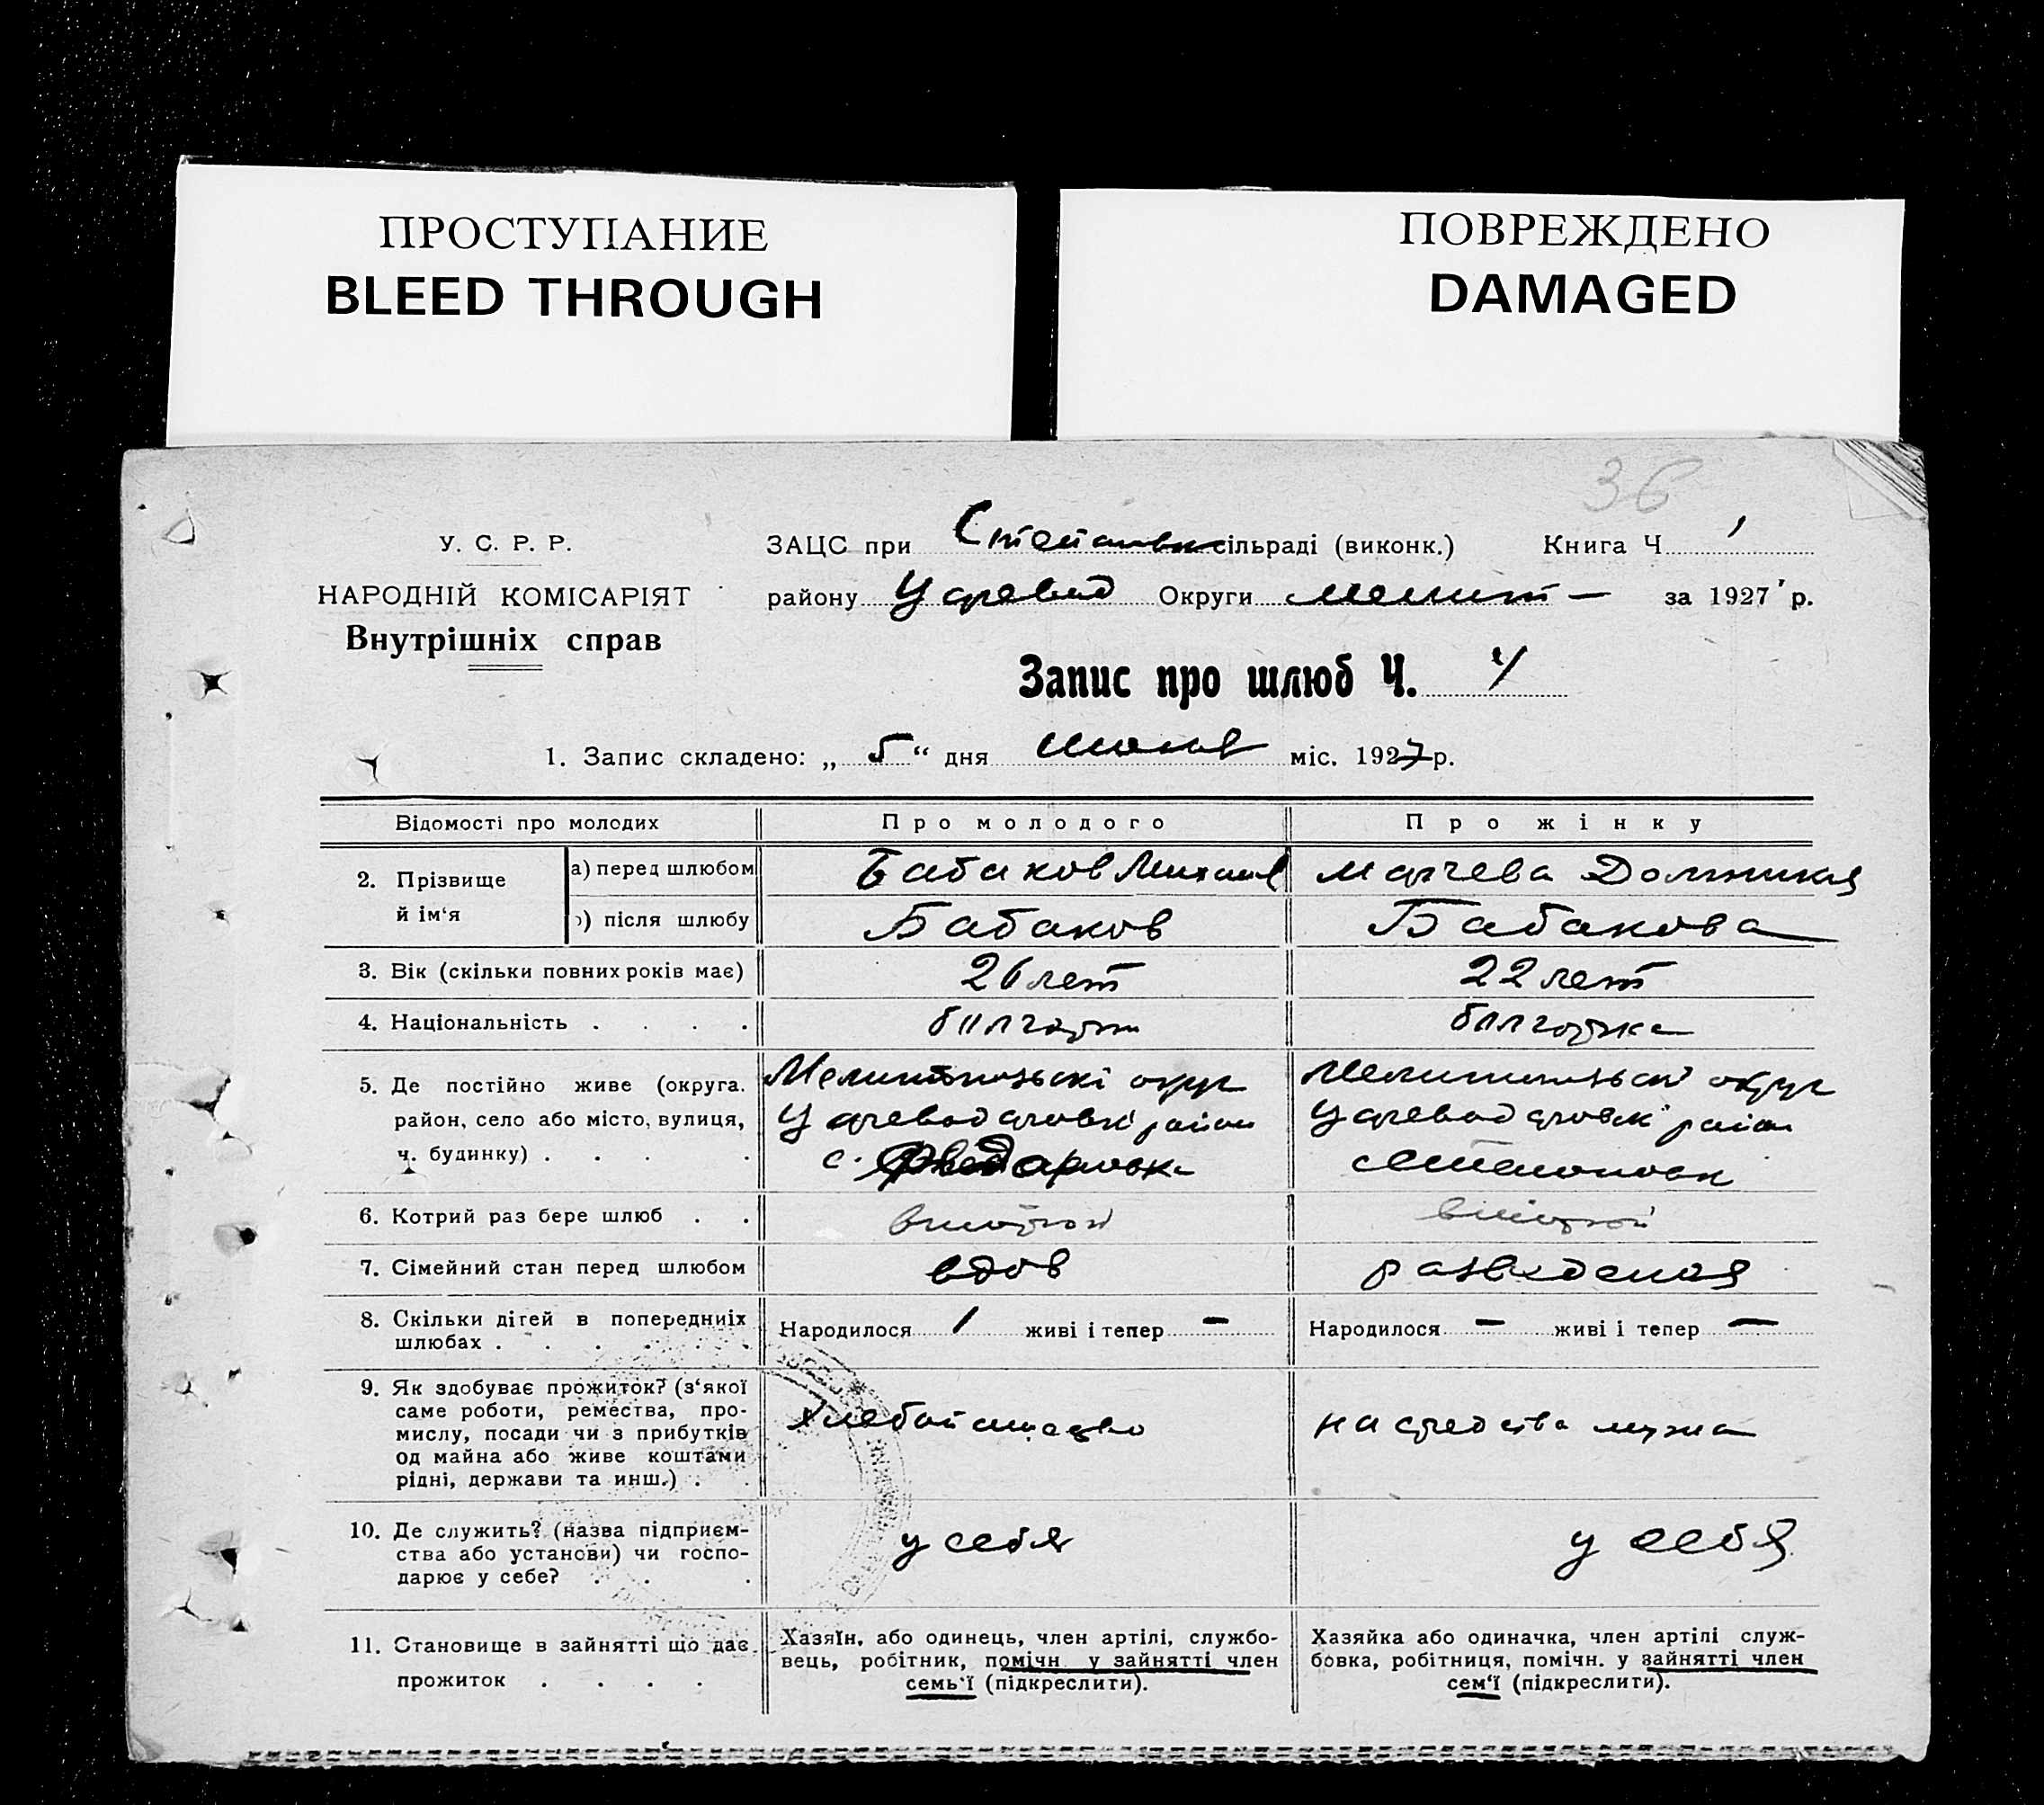 ПРОСТУПАНИЕ
BLEED THROUGH
ПОВРЕЖДЕНО
DAMAGED
36
У. С. Р. Р.
НАРОДНІЙ КОМІСАРІЯТ
Внутрішніх справ
ЗАЦС при Степановк сільраді (виконк.) Книга Ч 1
району Царевод Округи Мелит — за 1927 р.
Запис про шлюб Ч. 4
1. Запис складено: „ 5 “ дня міс. 1927 р.
Відомості про молодих Про молодого Про жінку
2. Прізвище й ім‘я а) перед шлюбом Бабаков Михаил Марчева Домникия
б) після шлюбу Бабаков Бабакова
3. Вік (скільки повних років має) 26 лет 22 лет
4. Національність . . . . болгарин болгарка
5. Де постійно живе (округа. Мелитопольскі округ Мелитопольскі округ
район, село або місто, вулиця, Цареводаровскі район Цареводаровскі район
ч. будинку) . . . . с. Степановк
6. Котрий раз бере шлюб . . второй второй
7. Сімейний стан перед шлюбом вдов разведеная
8. Скільки дітей в попередниіх
шлюбах . . . . . . Народилося 1 живі і тепер — Народилося — живі і тепер —
9. Як здобуває прожиток? (з‘якої
саме роботи, ремества, про-
мислу, посади чи з прибутків
од майна або живе коштами
рідні, держави та инш.) . .
Хлебопашество на средства мужа
10. Де служить? (назва підприєм-
ства або установи) чи госпо-
дарює у себе? . . .
у себя у себя
11. Становище в зайнятті що дає
прожиток . . . .
Хазяїн, або одинець, член артілі, службо-
вець, робітник, помічн. у зайнятті член
семь‘ї (підкреслити).
Хазяйка або одиначка, член артілі служ-
бовка, робітниця, помічн. у зайнятті член
сем‘ї (підкреслити).